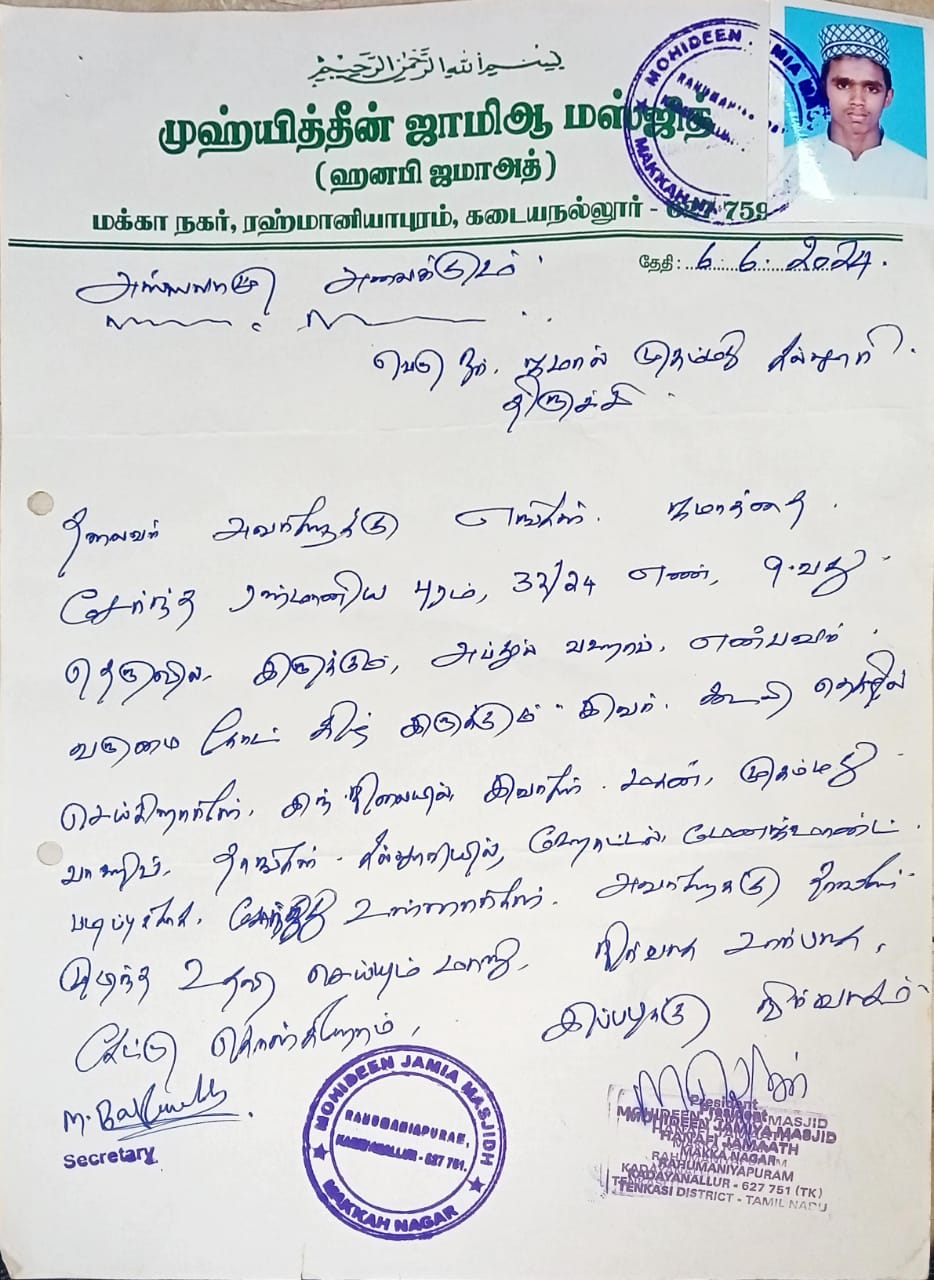 بسم الله الرحمن الرحيم
முஹ்யித்தீன் ஜாமிஆ மஸ்ஜித்
(ஹனபி ஜமாஅத்)
மக்கா நகர், ரஹ்மானியாபுரம், கடையநல்லூர் - 627 759
MOHIDEEN JAMIA
MAKKAH
தேதி : 6.6.2024.
அஸ்ஸலாமு அலைக்கும்
ஜமால் முகம்மது கல்லூரி
திருச்சி
தலைவர் அவர்களுக்கு எங்கள் ஜமாத்தை
சேர்ந்த ரஹ்மானிய புரம், 32/24 எண், 9-வது
தெருவில் இருக்கும், அப்துல் வஹாப், என்பவர்
வருமை கோட் கீழ் இருக்கும் இவர் கூலி தொழில்
செய்கிறார்கள், இந் நிலையில், இவர்கள் மகன், முகம்மது
தங்கள் கல்லூரியில், ஹோட்டல் மேனஜ்மாண்ட்
படிப்புக்காக சேர்ந்து உள்ளார்கள். அவர்களுக்கு தாங்கள்
முடிந்த உதவி செய்யும் மாறு,
கேட்டு கொள்கிறோம், இப்படிக்கு நிர்வாகம்
Secretary
MOHIDEEN JAMIA MASJIDH
RAHUMANIAPURAM,
KADAYANALLUR - 627 751.
MAKKAH NAGAR
President
MOHIDEEN JAMIYA MASJID
HANAFI JAMAATH
MAKKA NAGAR
RAHUMANIYAPURAM
KADAYANALLUR - 627 751 (TK)
TENKASI DISTRICT - TAMIL NADU